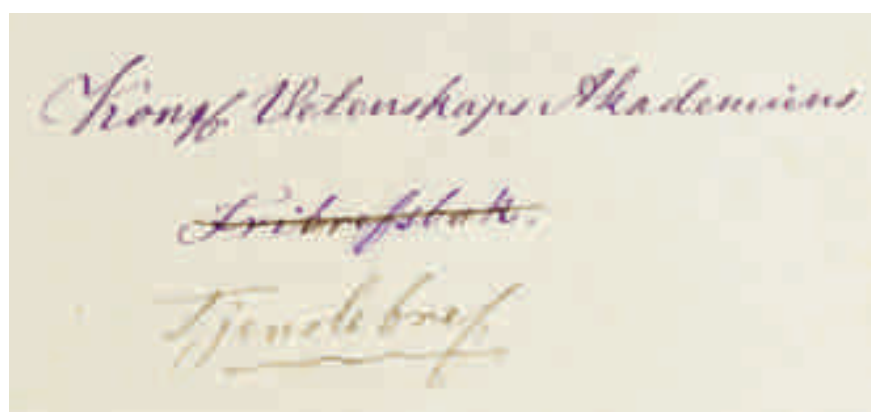 Kongl. Vetenskaps Akademiens
Fribrefsbok.
Tjenstebref